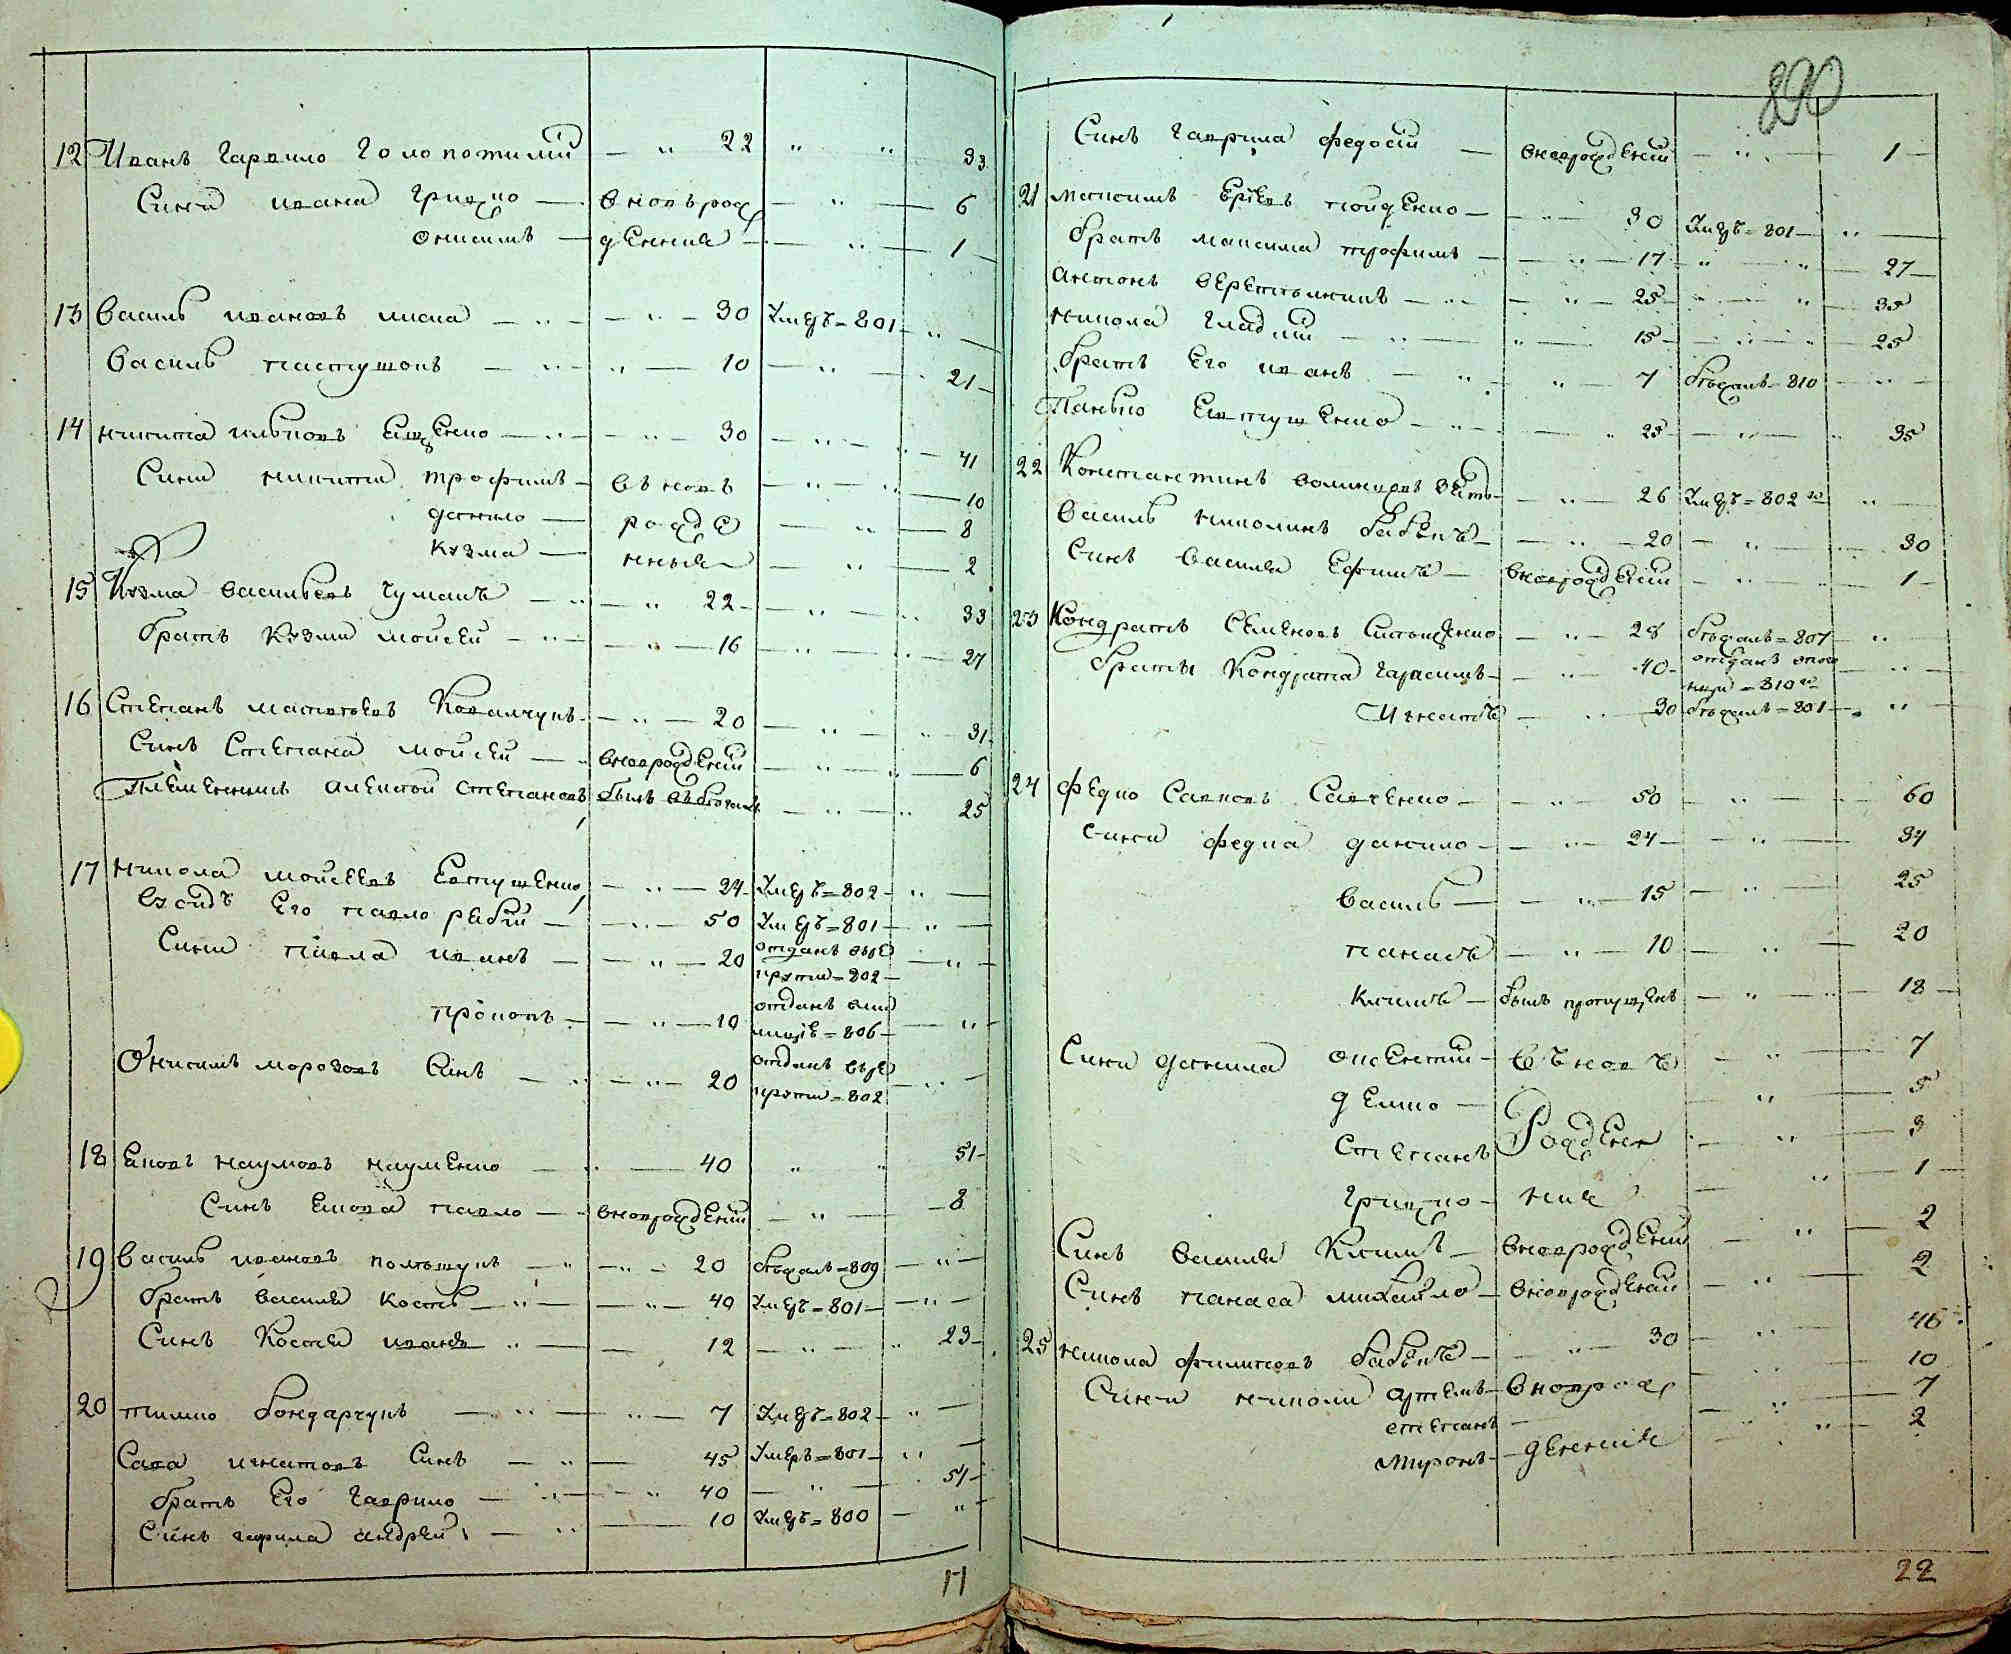 12 Иванъ Гаврило Голопотилій — " 22 " " 33
Сини ивана грицко — вновърож — " — 6
онисимъ — деннии — " — 1 —
13 Василь ивановъ лиса — " — 30 Умеръ = 801 — "
Василь пастушокъ — " — 10 — " — 21 —
14 никита ильковъ Ещенко — " — 30 — " — 41
Сини никити трофимъ — въновъ — " — 10
данило — рожде — " — 8
кузма — нныя — " — 2
15 Кузма васильевъ чумакъ — " 22 — " — 33
братъ кузми мойсей — " — 16 — " — 27
16 Степанъ матвеевъ Ковалчукъ — " — 20 — " — 31
Синъ Степана мойсей — вноврожденій — " — 6
Племенникъ алексей степановъ былъ въбегахъ — " — 25
17 никола мойсеевъ Евтушенко — " — 24 — Умеръ = 802 — "
Его павло рабій — " — 50 Умеръ = 801 — "
Сини павла иванъ — " — 20 отданъ врѣ
круты = 802 — "
прокопъ — " — 10 отданъ
= 806 — "
Онисимъ морозовъ Синъ — " — 20 отданъ врѣ
круты = 802 — "
18 Яковъ наумовъ науменко — " — 40 " " 51 —
Синъ Якова павло — вноврожденій — " — 8
19 василь ивановъ — " — 20 бѣжалъ = 809 — " —
братъ василя кость — " — 40 Умеръ = 801 — " —
Синъ Костя иванъ " — 12 — " — 23 —
20 тимко бондарчукъ — " — 7 Умеръ = 802 — " —
Сава игнатовъ Синъ — " — 45 Умеръ = 801 — " —
братъ Его гаврило — " — 40 — " — 51 —
Синъ гаврила андрей — " — 10 Умеръ = 800 — "
17
290
Синъ гаврила федосій — вноврожденій — " — 1 —
21 максимъ — " — 30 Умеръ = 801 — " —
братъ максима трофимъ — " — 17 — " — 27 —
антонъ — " — 25 — " — 35
никола гладкій — " — 15 — " — 25
братъ Его иванъ — " — 7 бѣжалъ = 810 — " —
Панько Евтушенко — " — 25 — " — 35
22 Константинъ — " — 26 Умеръ = 802 го "
василь николинъ бабѣкъ — " — 20 — " — 30
Синъ василя Ефимъ — вноврожденій — " — 1 —
23 Кондратъ Семеновъ — " — 28 бѣжалъ = 807 — "
братъя Кондрата гарасимъ — " — 40 — отданъ
= 810 го — "
Игнатъ — " — 30 бѣжалъ = 801 — "
24 федко Савковъ Савченко — " — 50 — " — 60
Сини федка данило — " — 24 — " — 34
василь — " — 15 — " — 25
панасъ — " — 10 — " — 20
климъ — былъ пропущенъ — " — 18 —
Сини данила оксентій — въновъ — " — 7
демко — " — 5
Степанъ Рожден — " — 3
грицко — ния — " — 1 —
Синъ василя Климъ — вноврожденій — " — 2
Синъ панаса михайло — вноврожденій — " — 2
25 никола филиповъ бабѣкъ — " — 30 — " — 46
Сини николи артемъ — вноврож — 10
степанъ — " — 7
миронъ — деннія — " — 2
22